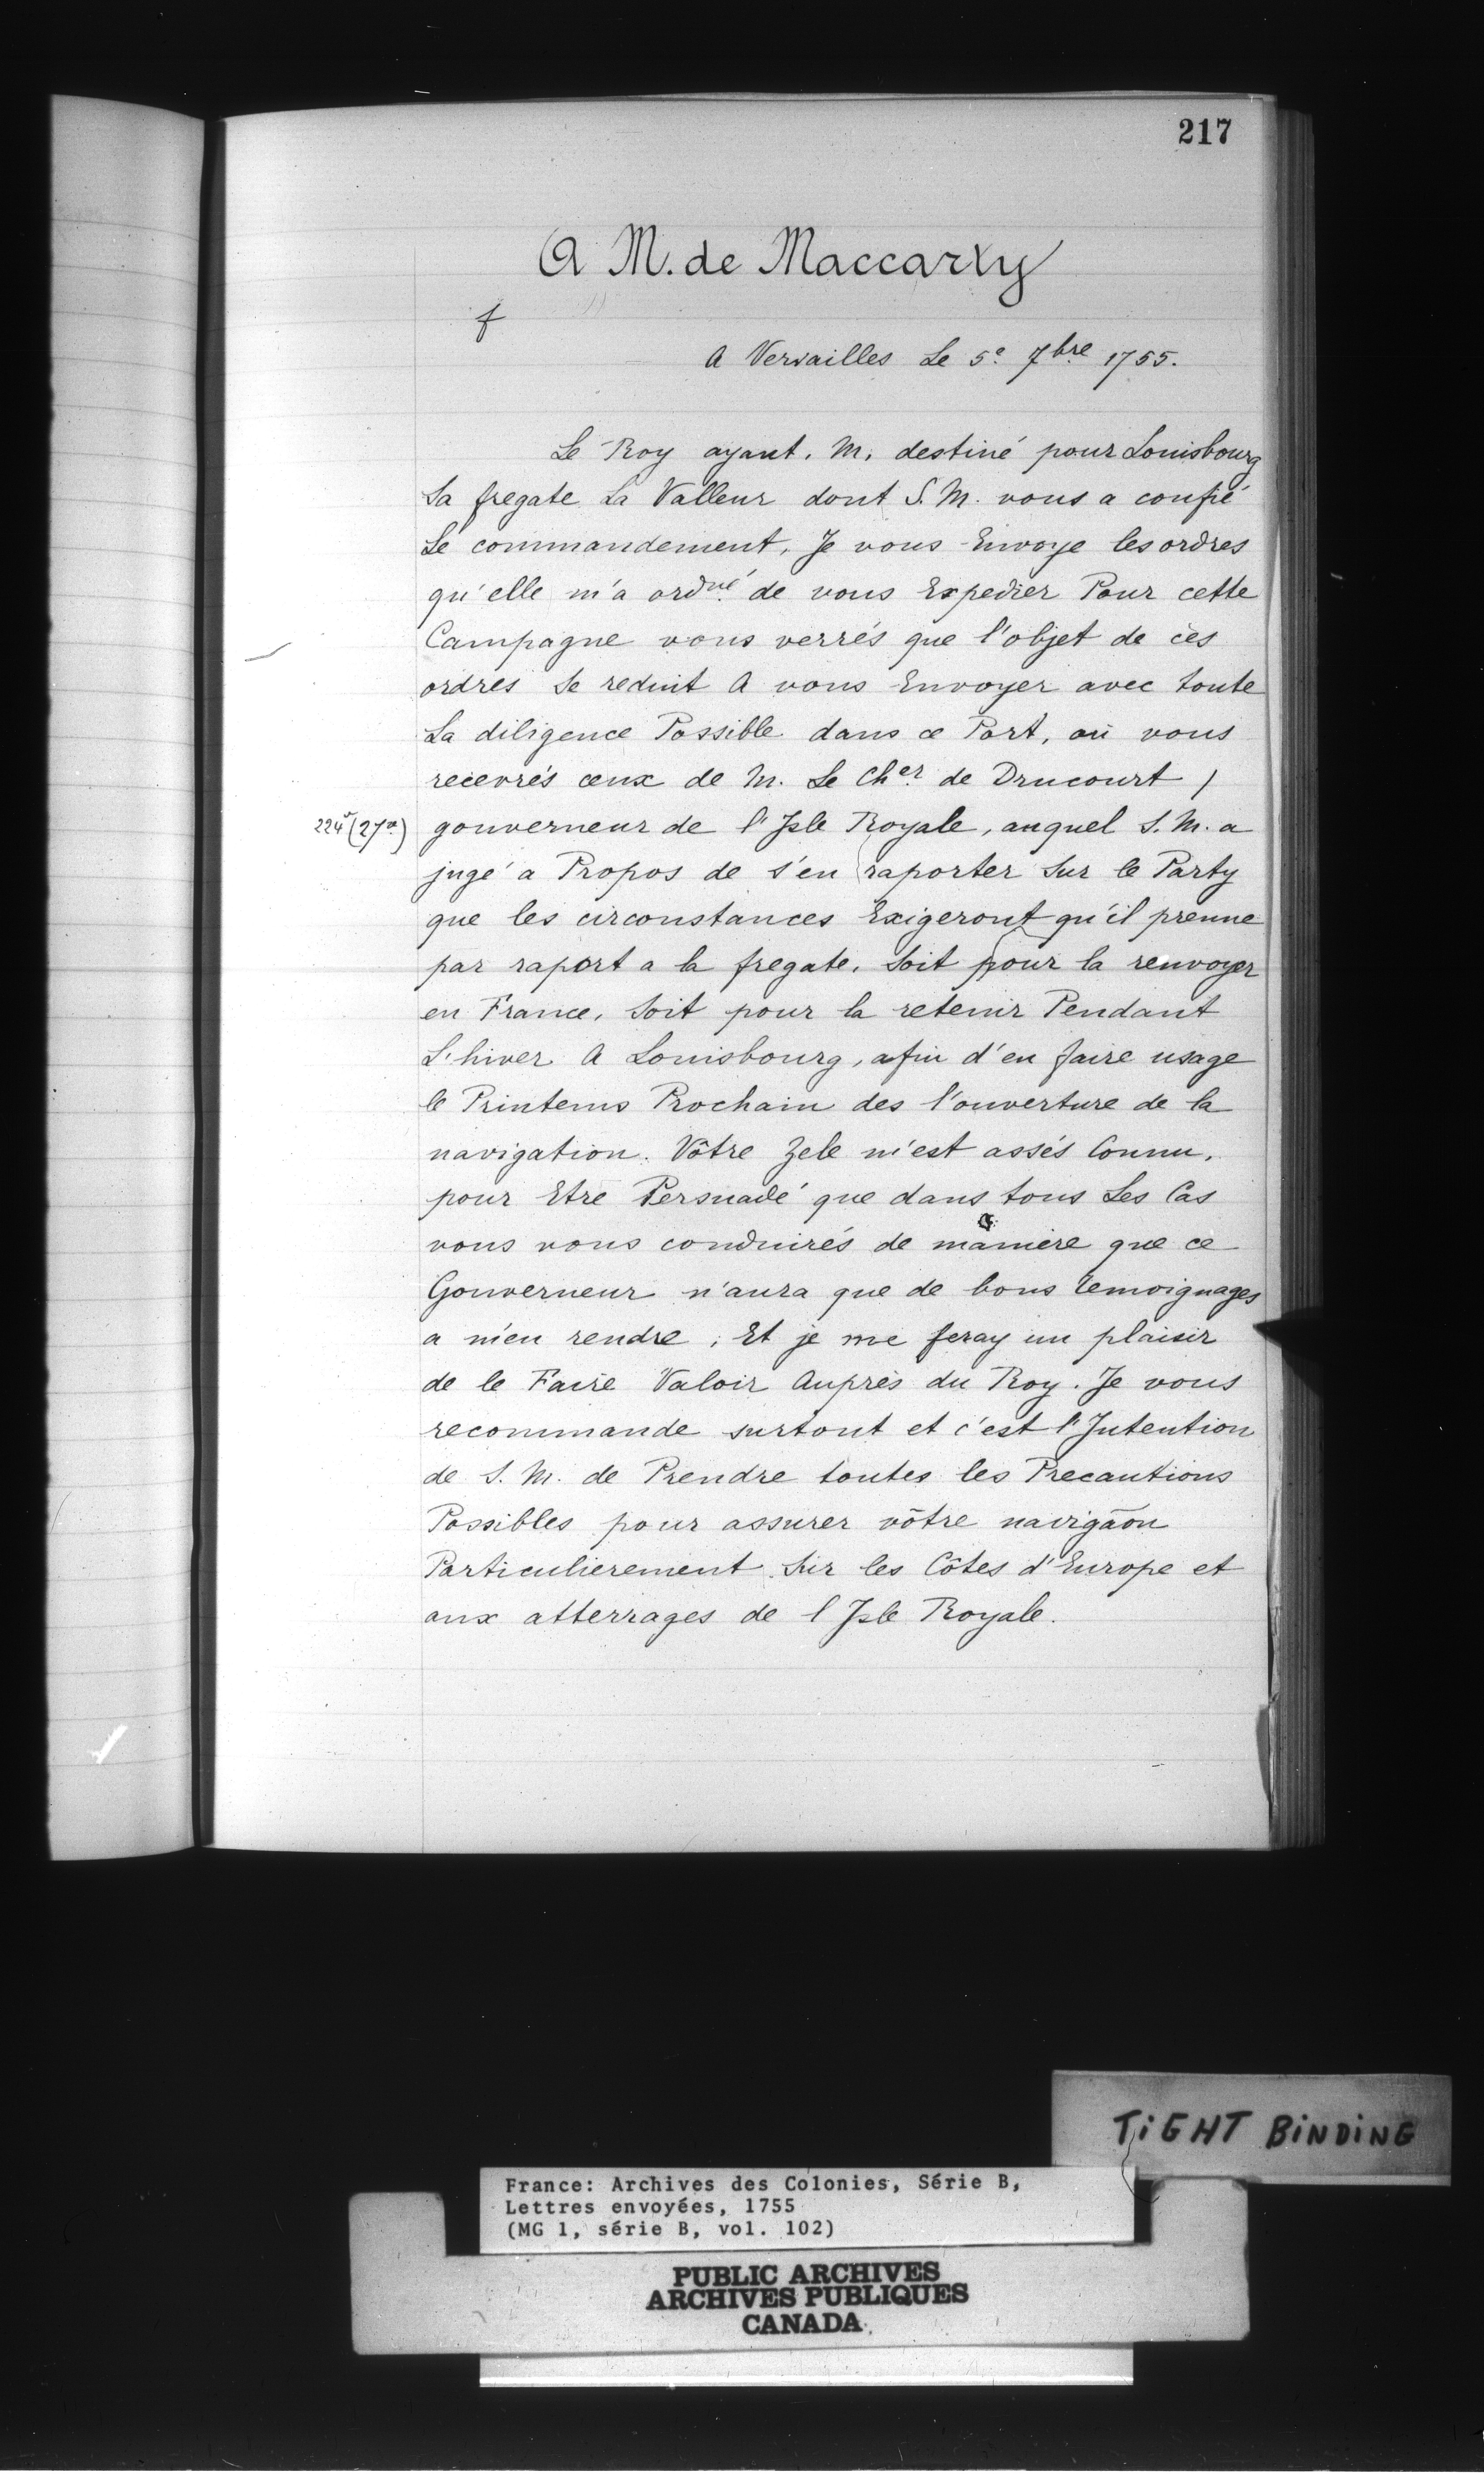 217
A M. de Maccarty
f
A Versailles Le 5e. 7bre 1755.
Le Roy ayant. M. destiné pour Louisbourg
Sa fregate La Valleur dont S. M. vous a confié
Le commandement, Je vous Envoye les ordres
qu'elle m'a ordné de vous Expedier Pour cette
Campagne vous verrés que l'objet de ces
ordres Se reduit A vous Envoyer avec toute
La diligence Possible dans ce Port, où vous
recevrés ceux de M. Le Cher. de Drucourt /
224v (27a) gouverneur de l'Isle Royale, auquel S. M. a
jugé a Propos de s'en raporter Sur le Party
que les circonstances Exigeront qu'il prenne
par raport a la fregate, Soit pour la renvoyer
en France, Soit pour la retenir Pendant
L'hiver A Louisbourg, afin d'en faire usage
le Printems Prochain des l'ouverture de la
navigation. Vôtre Zele m'est assés Connu,
pour Etre Persuadé que dans tous Les Cas
vous vous conduirés de maniere que ce
Gouverneur n'aura que de bons temoignages
a m'en rendre, Et je me feray un plaisir
de le Faire Valoir Auprès du Roy. Je vous
recommande surtout et c'est l'Intention
de S. M. de Prendre toutes les Precautions
Possibles pour assurer vôtre navigãon
Particulierement Sur les Côtes d'Europe et
aux atterrages de l Isle Royale.
TiGHT BiNDiNG
France: Archives des Colonies, Série B,
Lettres envoyées, 1755
(MG 1, série B, vol. 102)
PUBLIC ARCHIVES
ARCHIVES PUBLIQUES
CANADA